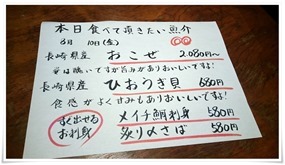 本日食べて頂きたい魚介
6月10日(金)
長崎県産 おこぜ 2,080円〜
見た目は醜いですが旨みがありおいしいですよ!
長崎県産 ひおうぎ貝 680円
食感がよく甘みもありおいしいですよ!
すぐ出せるお刺身
メイチ鯛刺身 580円
炙り〆さば 580円